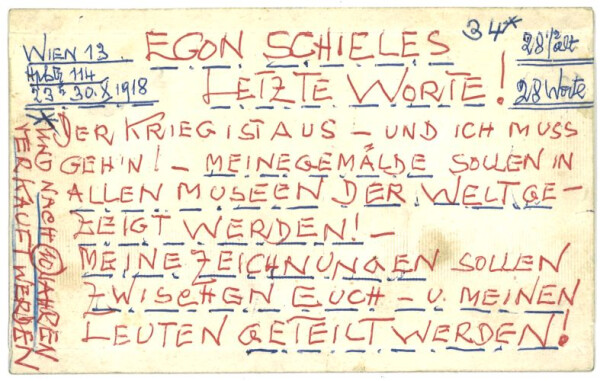 WIEN 13.
114
23h 30.X 1918
EGON SCHIELES
LETZTE WORTE!
34*
28 1/2 alt
28 Worte
DER KRIEG IST AUS – UND ICH MUSS
GEH'N! – MEINE GEMÄLDE SOLLEN IN
ALLEN MUSEEN DER WELT GE–
ZEIGT WERDEN! –
MEINE ZEICHNUNGEN SOLLEN
ZWISCHEN EUCH – U. MEINEN
LEUTEN GETEILT WERDEN!
* UND NACH JAHREN
VERKAUFT WERDEN